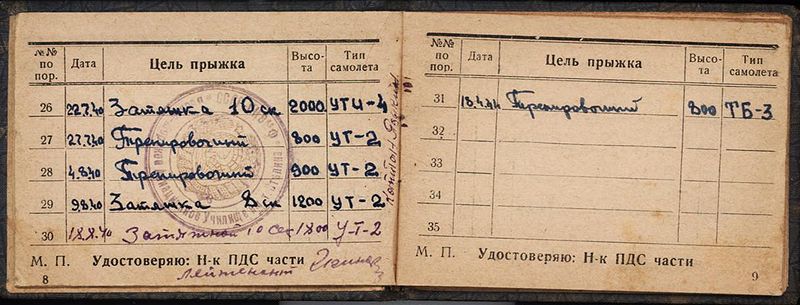 №№ по пор. Дата Цель прыжка Высо- та Тип самолета
26 22.7.40 Затяжка 10 ск 2000 УТИ-4
27 27.7.40 Тренировочный 800 УТ-2
28 4.8.40 Тренировочный 900 УТ-2
29 9.8.40 Затяжка 8 ск 1200 УТ-2
30 18.8.40 Затяжной 10 сек 1800 УТ-2
М. П. Удостоверяю: Н-к ПДС части
лейтенант
8
Капитан
№№ по пор. Дата Цель прыжка Высо- та Тип самолета
31 Тренировочный 800 ТБ-3
32
33
34
35
М. П. Удостоверяю: Н-к ПДС части
9